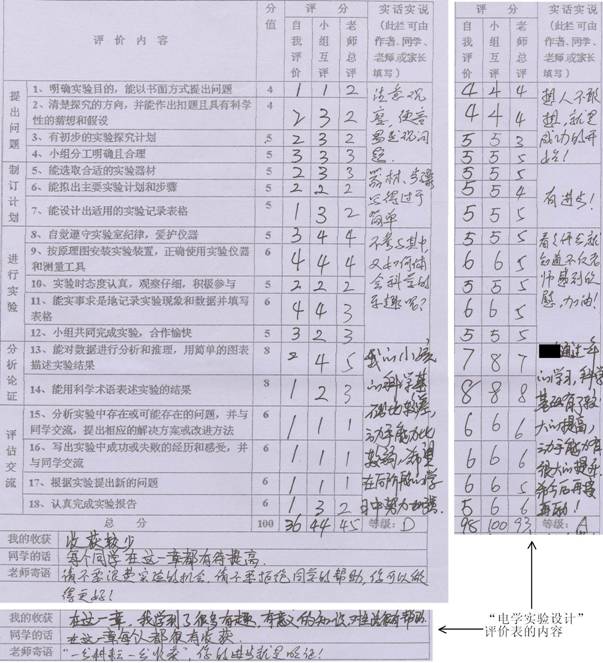 评 价 内 容 分值 评 分 实话实说
自我评价 小组互评 老师总评 (此栏可由作者、同学、老师或家长填写)
评 分 实话实说
自我评价 小组互评 老师总评 (此栏可由作者、同学、老师或家长填写)
提出问题
1、明确实验目的，能以书面方式提出问题 4 1 1 2 4 4 4
2、清楚探究的方向，并能作出扣题且具有科学性的猜想和假设 4 2 3 2 4 4 4
3、有初步的实验探究计划 5 2 3 2 5 5 3
4、小组分工明确且合理 5 3 3 3 5 5 5
注意观察，使善 发现问题。
想人不敢想，就是成功的开始！
制订计划
5、能选取合适的实验器材 5 2 3 3 5 5 5
6、能拟出主要实验计划和步骤 5 2 2 2 5 5 4
7、能设计出适用的实验记录表格 5 1 3 2 5 5 5
器材、步骤写得过于简单
有进步！
进行实验
8、自觉遵守实验室纪律，爱护仪器 5 3 4 4 5 5 5
9、按原理图安装实验装置，正确使用实验仪器和测量工具 6 4 4 4 6 6 5
10、实验时态度认真，观察仔细，积极参与 5 2 2 2 5 5 5
11、能实事求是地记录实验现象和数据并填写表格 6 4 4 3 6 6 5
12、小组共同完成实验，合作愉快 5 3 2 3 5 5 5
不参与其中，又如何体会科学的乐趣呢？
看了评七就知道不仅老师感到欣慰，加油！
分析论证
13、能对数据进行分析和推理，用简单的图表描述实验结果 8 2 4 5 7 8 7
14、能用科学术语表述实验的结果 8 1 2 3 8 8 8
评估交流
15、分析实验中存在或可能存在的问题，并与同学交流，提出相应的解决方案或改进方法 6 1 1 1 6 6 6
16、写出实验中成功或失败的经历和感受，并与同学交流 6 1 1 1 6 6 6
17、根据实验提出新的问题 6 1 1 1 6 6 5
18、认真完成实验报告 6 1 3 2 5 6 6
我的小孩的科学基础比较差，动手能力也较弱，希望在后阶段的学习中努力加强。
通过一年的学习，科学基础有了较大的提高，动手能力有很大的提升，希今后再接再励！
总 分 100 36 44 45 等级：D 98 100 93 等级：A
我的收获 收获较少
同学的话 每个同学在这一章都有待提高.
老师寄语 请不要浪费实验的机会，请不要拒绝同学的帮助，你可以做得更好！
我的收获 在这一章，我学到了很多有趣，有意义的知识，对生活很有帮助
同学的话 在这一章每个人都很有收获.
老师寄语 “一分耕耘一分收获”，你的进步就是验证！
“电学实验设计”
评价表的内容